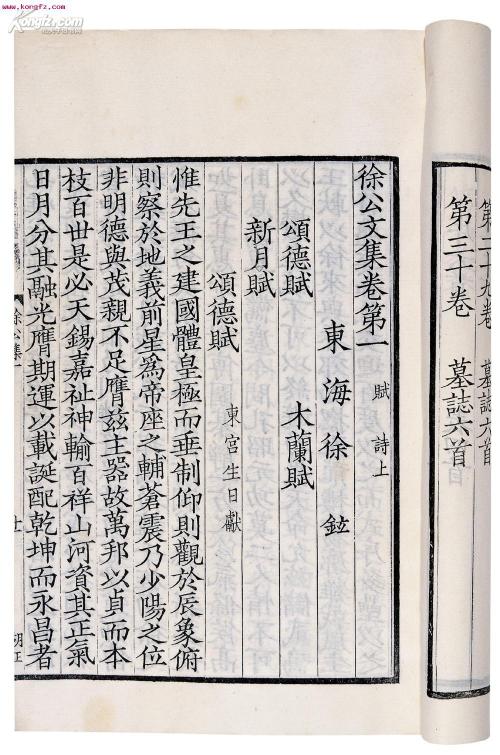 www.kongfz.com
Kongfz.com
第二十九卷　墓誌六首
第三十卷　墓誌六首
徐公文集卷第一　賦　詩上
東海徐鉉
頌德賦　木蘭賦
新月賦
頌德賦　東宮生日獻
惟先王之建國體皇極而垂制仰則觀於辰象俯
則察於地義前星為帝座之輔蒼震乃少陽之位
非明德與茂親不足膺茲主器故萬邦以貞而本
枝百世是必天錫嘉祉神輸百祥山河資其正氣
日月分其融光膺期運以載誕配乾坤而永昌者
徐公集一